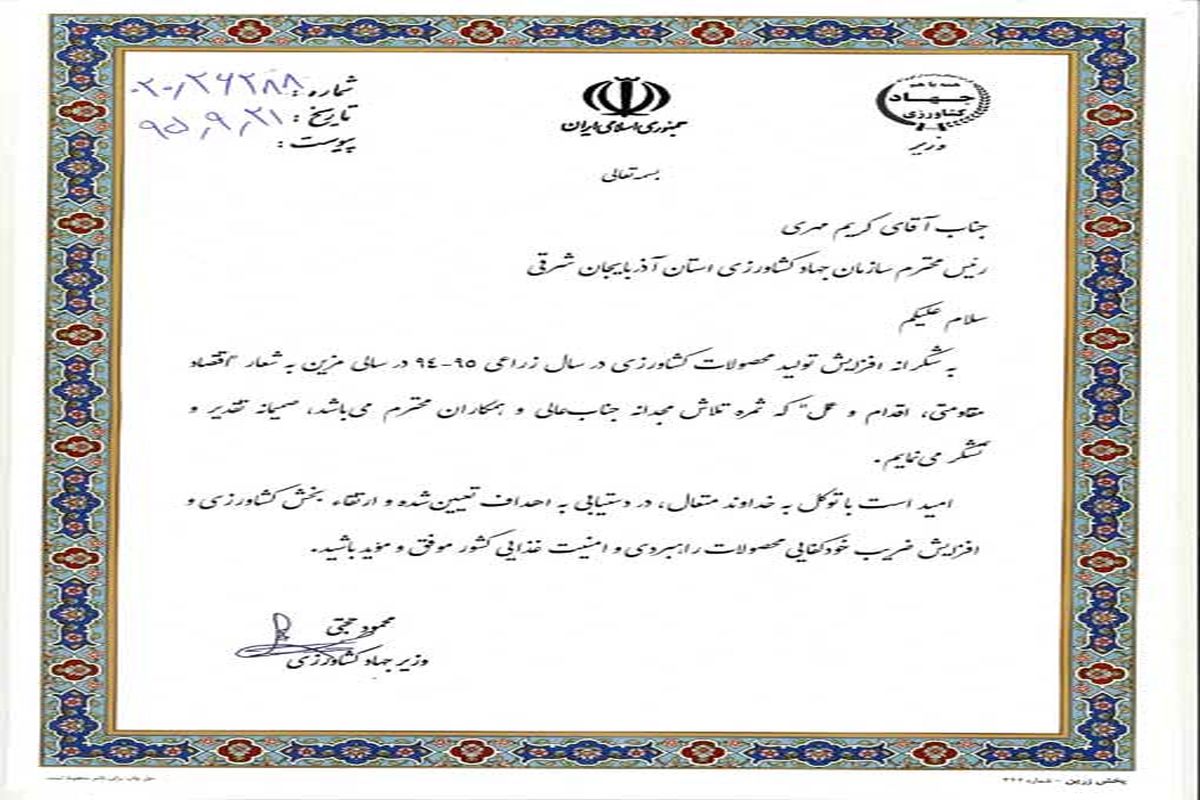 همه با هم
جهاد
کشاورزی
وزیر
جمهوری اسلامی ایران
شماره: ۰۲۰/۲۶۲۸۸
تاریخ: ۹۵/۹/۲۱
پیوست:
بسمه تعالی
جناب آقای کریم مهری
رئیس محترم سازمان جهاد کشاورزی استان آذربایجان شرقی
سلام علیکم
به شکرانه افزایش تولید محصولات کشاورزی در سال زراعی ۹۵-۹۴ در سالی مزین به شعار "اقتصاد
مقاومتی، اقدام و عمل" که ثمره تلاش مجدانه جناب‌عالی و همکاران محترم می‌باشد، صمیمانه تقدیر و
تشکر می‌نمایم.
امید است با توکل به خداوند متعال، در دستیابی به اهداف تعیین‌شده و ارتقاء بخش کشاورزی و
افزایش ضریب خودکفایی محصولات راهبردی و امنیت غذایی کشور موفق و مؤید باشید.
محمود حجتی
وزیر جهاد کشاورزی
پخش زرین - شماره ۳۶۲
حق چاپ برای ناشر محفوظ است